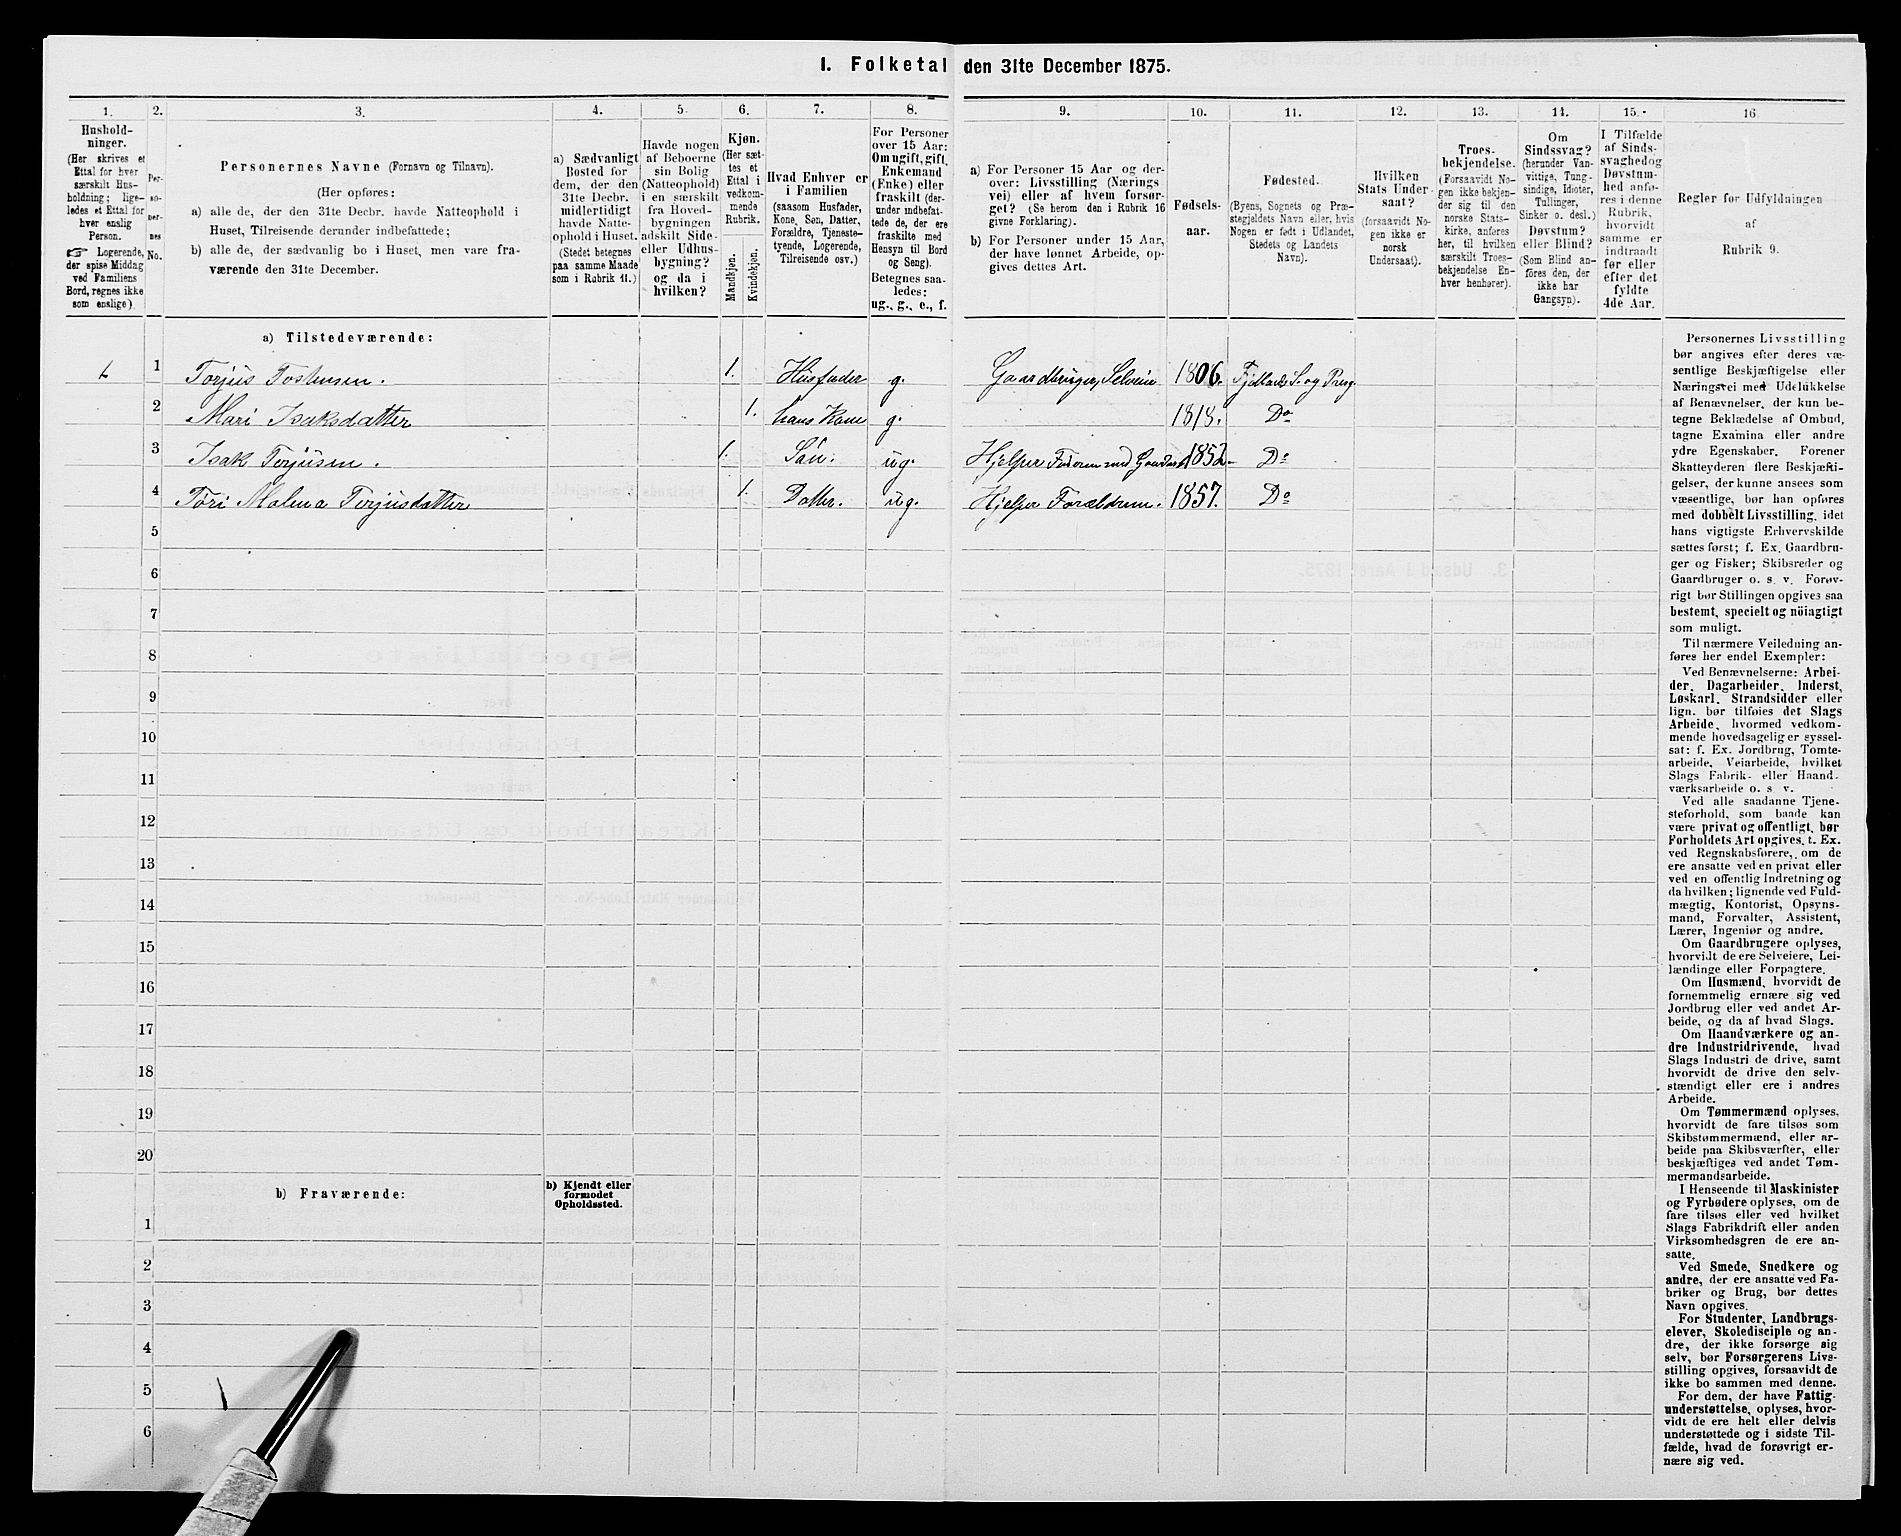 I. Folketal den 31te December 1875.
1.
2.
3.
4.
5.
6.
7.
8.
9.
10.
11.
12.
13.
14.
15.
16
Hushold-
ninger.
(Her skrives et
Ettal for hver
særskilt Hus-
holdning; lige-
ledes et Ettal for
hver enslig
Person.
☞ Logerende,
der spise Middag
ved Familiens
Bord, regnes ikke
som enslige).
Per-
so-
ner-
nes
No.
Personernes Navne (Fornavn og Tilnavn).
(Her opføres:
a) alle de, der den 31te Decbr. havde Natteophold i
Huset, Tilreisende derunder indbefattede;
b) alle de, der sædvanlig bo i Huset, men vare fra-
værende den 31te December.
a) Sædvanligt
Bosted for
dem, der den
31te Decbr.
midlertidigt
havde Natte-
ophold i Huset.
(Stedet betegnes
paa samme Maade
som i Rubrik 11.)
Havde nogen
af Beboerne
sin Bolig
(Natteophold)
i en særskilt
fra Hoved-
bygningen
adskilt Side-
eller Udhus-
bygning?
og da i
hvilken?
Kjøn.
(Her sæt-
tes et
Ettal i
vedkom-
mende
Rubrik.
Mandkjøn.
Kvindekjøn.
Hvad Enhver er
i Familien
(saasom Husfader,
Kone, Søn, Datter,
Forældre, Tjeneste-
tyende, Logerende,
Tilreisende osv.)
For Personer
over 15 Aar:
Om ugift, gift,
Enkemand
(Enke) eller
fraskilt (der-
under indbefat-
tede de, der ere
fraskilte med
Hensyn til Bord
og Seng).
Betegnes saa-
ledes:
ug., g., e., f.
a) For Personer 15 Aar og der-
over: Livsstilling (Nærings-
vei) eller af hvem forsør-
get? (Se herom den i Rubrik 16
givne Forklaring).
b) For Personer under 15 Aar,
der have lønnet Arbeide, op-
gives dettes Art.
Fødsels-
aar.
Fødested.
(Byens, Sognets og Præ-
stegjeldets Navn eller, hvis
Nogen er født i Udlandet,
Stedets og Landets
Navn).
Hvilken
Stats Under-
saat?
(forsaavidt No-
gen ikke er
norsk
Undersaat).
Troes-
bekjendelse.
(Forsaavidt No-
gen ikke bekjen-
der sig til den
norske Stats-
kirke, anføres
her, til hvilken
særskilt Troes-
bekjendelse En-
hver henhører).
Om
Sindssvag?
(herunder Van-
vittige, Tung-
sindige, Idioter,
Tullinger,
Sinker o. desl.)
Døvstum?
eller Blind?
(Som Blind an-
føres den, der
ikke har
Gangsyn).
I Tilfælde
af Sinds-
svaghed og
Døvstum-
hed anfø-
res i denne
Rubrik,
hvorvidt
samme er
indtraadt
før eller
efter det
fyldte
4de Aar.
Regler for Udfyldningen
af
Rubrik 9.
a) Tilstedeværende:
1 Torjus Tostensen. 1. Husfader g. Gaardbruger, Selveier 1806. S. og Præg.
2 Mari Isaksdatter 1. hans Kone g. 1818. Do
3 Isak Torjusen. 1. Søn. ug. Hjelper Faderen med 1852. Do
4 Tori Malena Torjusdatter 1. Datter. ug. Hjelper Forældrene. 1857. Do
5
6
7
8
9
10
11
12
13
14
15
16
17
18
19
20
b) Fraværende:
b) Kjendt eller
formodet
Opholdssted.
1
2
3
4
5
6
Personernes Livsstilling
bør angives efter deres væ-
sentlige Beskjæftigelse eller
Næringsvei med Udelukkelse
af Benævnelser, der kun be-
tegne Beklædelse af Ombud,
tagne Examina eller andre
ydre Egenskaber. Forener
Skatteyderen flere Beskjæfti-
gelser, der kunne ansees som
væsentlige, bør han opføres
med dobbelt Livsstilling, idet
hans vigtigste Erhvervskilde
sættes først; f. Ex. Gaardbru-
ger og Fisker; Skibsreder og
Gaardbruger o. s. v. Forøv-
rigt bør Stillingen opgives saa
bestemt, specielt og nöiagtigt
som muligt.
Til nærmere Veiledning an-
føres her endel Exempler:
Ved Benævnelserne: Arbei-
der, Dagarbeider, Inderst,
Løskarl, Strandsidder eller
lign. bør tilføies det Slags
Arbeide, hvormed vedkom-
mende hovedsagelig er syssel-
sat: f. Ex. Jordbrug, Tomte-
arbeide, Veiarbeide, hvilket
Slags Fabrik- eller Haand-
værksarbeide o. s. v.
Ved alle saadanne Tjene-
steforhold, som baade kan
være privat og offentligt, bør
Forholdets Art opgives, t. Ex.
ved Regnskabsførere, om de
ere ansatte ved en privat eller
ved en offentlig Indretning og
da hvilken; lignende ved Fuld-
mægtig, Kontorist, Opsyns-
mand, Forvalter, Assistent,
Lærer, Ingeniør og andre.
Om Gaardbrugere oplyses,
hvorvidt de ere Selveiere, Lei-
lændinge eller Forpagtere.
Om Husmænd, hvorvidt de
fornemmelig ernære sig ved
Jordbrug eller ved andet Ar-
beide, og da af hvad Slags.
Om Haandværkere og an-
dre Industridrivende, hvad
Slags Industri de drive, samt
hvorvidt de drive den selv-
stændigt eller ere i andres
Arbeide.
Om Tømmermænd oplyses,
hvorvidt de fare tilsøs som
Skibstømmermænd, eller ar-
beide paa Skibsværfter, eller
beskjæftiges ved andet Tøm-
mermandsarbeide.
I Henseende til Maskinister
og Fyrbødere oplyses, om de
fare tilsøs eller ved hvilket
Slags Fabrikdrift eller anden
Virksomhedsgren de ere an-
satte.
Ved Smede, Snedkere og
andre, der ere ansatte ved Fa-
briker og Brug, bør dettes
Navn opgives.
For Studenter, Landbrugs-
elever, Skoledisciple og an-
dre, der ikke forsørge sig
selv, bør Forsørgerens Livs-
stilling opgives, forsaavidt de
ikke bo sammen med denne.
For dem, der have Fattig-
understøttelse, oplyses, hvor-
vidt de ere helt eller delvis
understøttede og i sidste Til-
fælde, hvad de forøvrigt er-
nære sig ved.